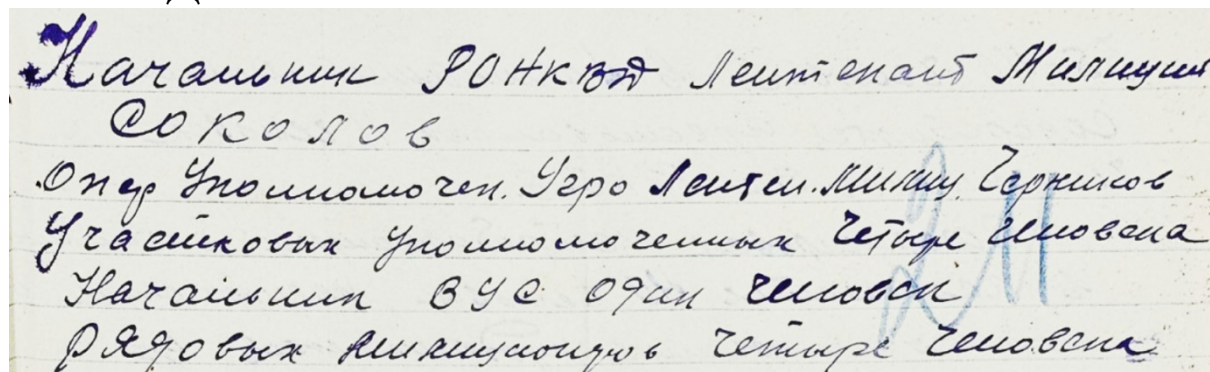 Начальник РОНКВД Лейтенант Милиции
Соколов
Опер Уполномочен. Угро Лейтен. Милиц. Черников
Участковых уполномоченных четыре человека
Начальник ВУС один человек
рядовых милиционеров четыре человека